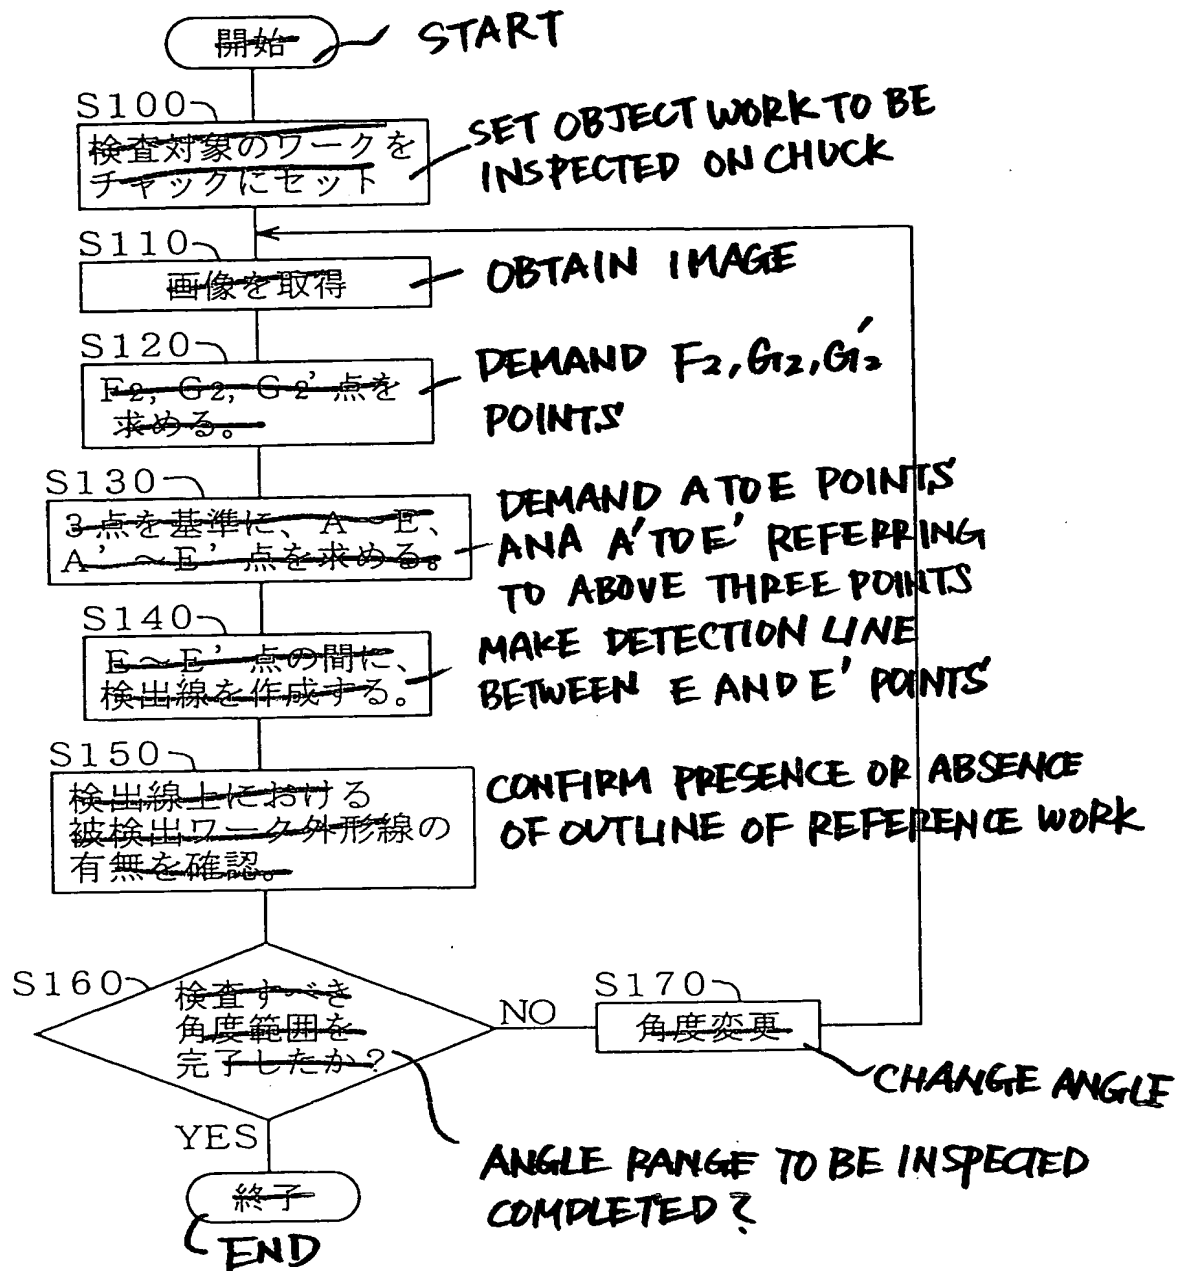 開始
START
S100
検査対象のワークを
チャックにセット
SET OBJECT WORK TO BE
INSPECTED ON CHUCK
S110
画像を取得
OBTAIN IMAGE
S120
F2, G2, G2' 点を
求める。
DEMAND F2, G2, G'2
POINTS
S130
3点を基準に、A～E、
A'～E' 点を求める。
DEMAND A TO E POINTS
ANA A' TO E' REFERRING
TO ABOVE THREE POINTS
S140
E～E' 点の間に、
検出線を作成する。
MAKE DETECTION LINE
BETWEEN E AND E' POINTS
S150
検出線上における
被検出ワーク外形線の
有無を確認。
CONFIRM PRESENCE OR ABSENCE
OF OUTLINE OF REFERENCE WORK
S160
検査すべき
角度範囲を
完了したか?
NO
S170
角度変更
CHANGE ANGLE
YES
ANGLE RANGE TO BE INSPECTED
COMPLETED?
終了
END